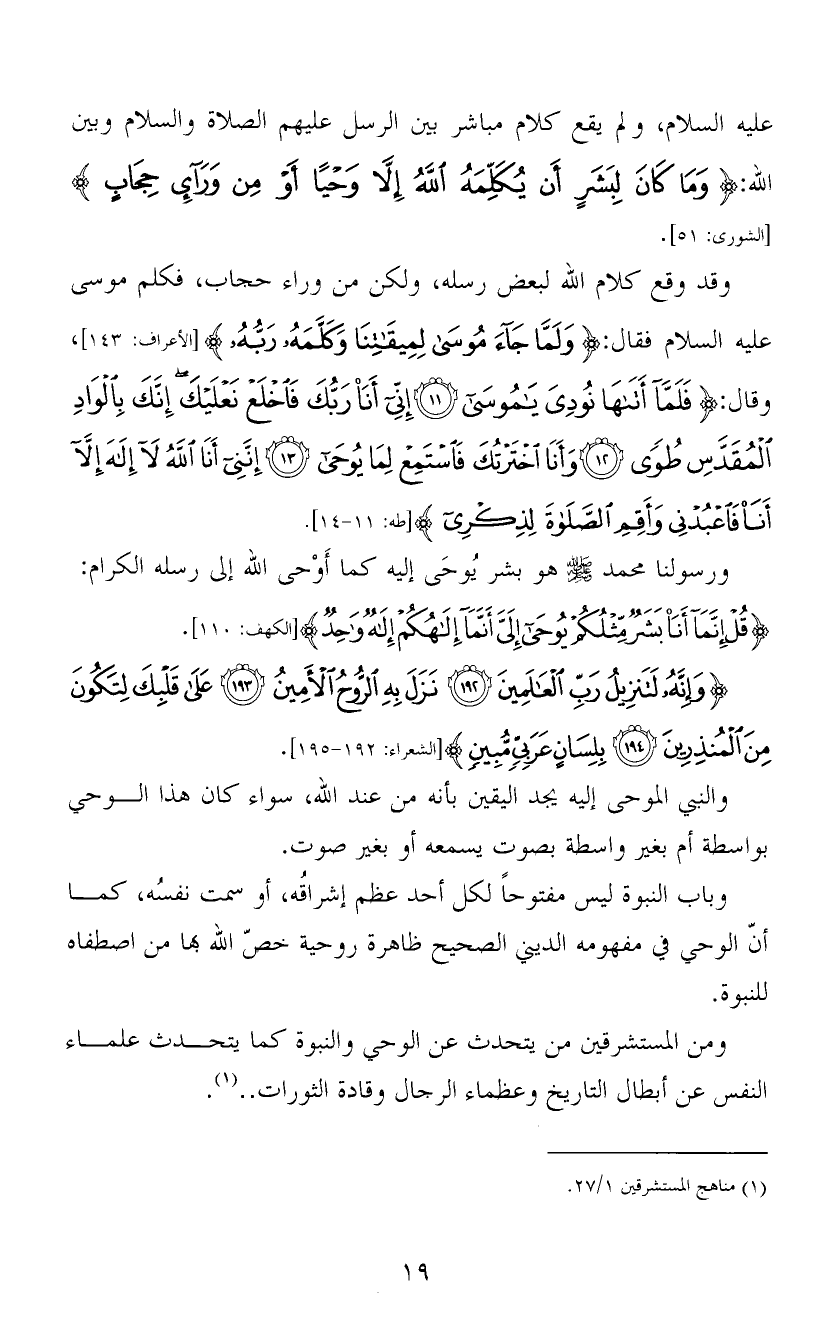 عليه السلام، ولم يقع كلام مباشر بين الرسل عليهم الصلاة والسلام وبين
الله: ﴿ وَمَا كَانَ لِبَشَرٍ أَن يُكَلِّمَهُ ٱللَّهُ إِلَّا وَحْيًا أَوْ مِن وَرَآئِ حِجَابٍ ﴾
[الشورى: ٥١].
وقد وقع كلام الله لبعض رسله، ولكن من وراء حجاب، فكلم موسى
عليه السلام فقال: ﴿ وَلَمَّا جَآءَ مُوسَىٰ لِمِيقَٰتِنَا وَكَلَّمَهُۥ رَبُّهُۥ ﴾ [الأعراف: ١٤٣]،
وقال: ﴿ فَلَمَّآ أَتَىٰهَا نُودِىَ يَٰمُوسَىٰٓ ١١ إِنِّىٓ أَنَا۠ رَبُّكَ فَٱخْلَعْ نَعْلَيْكَ ۖ إِنَّكَ بِٱلْوَادِ
ٱلْمُقَدَّسِ طُوًى ١٢ وَأَنَا ٱخْتَرْتُكَ فَٱسْتَمِعْ لِمَا يُوحَىٰٓ ١٣ إِنَّنِىٓ أَنَا ٱللَّهُ لَآ إِلَٰهَ إِلَّآ
أَنَا۠ فَٱعْبُدْنِى وَأَقِمِ ٱلصَّلَوٰةَ لِذِكْرِىٓ ﴾ [طه: ١١-١٤].
ورسولنا محمد ﷺ هو بشر يُوحَى إليه كما أَوْحى الله إلى رسله الكرام:
﴿ قُلْ إِنَّمَآ أَنَا۠ بَشَرٌ مِّثْلُكُمْ يُوحَىٰٓ إِلَىَّ أَنَّمَآ إِلَٰهُكُمْ إِلَٰهٌ وَٰحِدٌ ﴾ [الكهف: ١١٠].
﴿ وَإِنَّهُۥ لَتَنزِيلُ رَبِّ ٱلْعَٰلَمِينَ ١٩٢ نَزَلَ بِهِ ٱلرُّوحُ ٱلْأَمِينُ ١٩٣ عَلَىٰ قَلْبِكَ لِتَكُونَ
مِنَ ٱلْمُنذِرِينَ ١٩٤ بِلِسَانٍ عَرَبِىٍّ مُّبِينٍ ﴾ [الشعراء: ١٩٢-١٩٥].
والنبي الموحى إليه يجد اليقين بأنه من عند الله، سواء كان هذا الـــوحي
بواسطة أم بغير واسطة بصوت يسمعه أو بغير صوت.
وباب النبوة ليس مفتوحاً لكل أحد عظم إشراقُه، أو سمت نفسُه، كمـــا
أنّ الوحي في مفهومه الديني الصحيح ظاهرة روحية خصّ الله بها من اصطفاه
للنبوة.
ومن المستشرقين من يتحدث عن الوحي والنبوة كما يتحـــدث علمـــاء
النفس عن أبطال التاريخ وعظماء الرجال وقادة الثورات..(١).
(١) مناهج المستشرقين ٢٧/١.
١٩